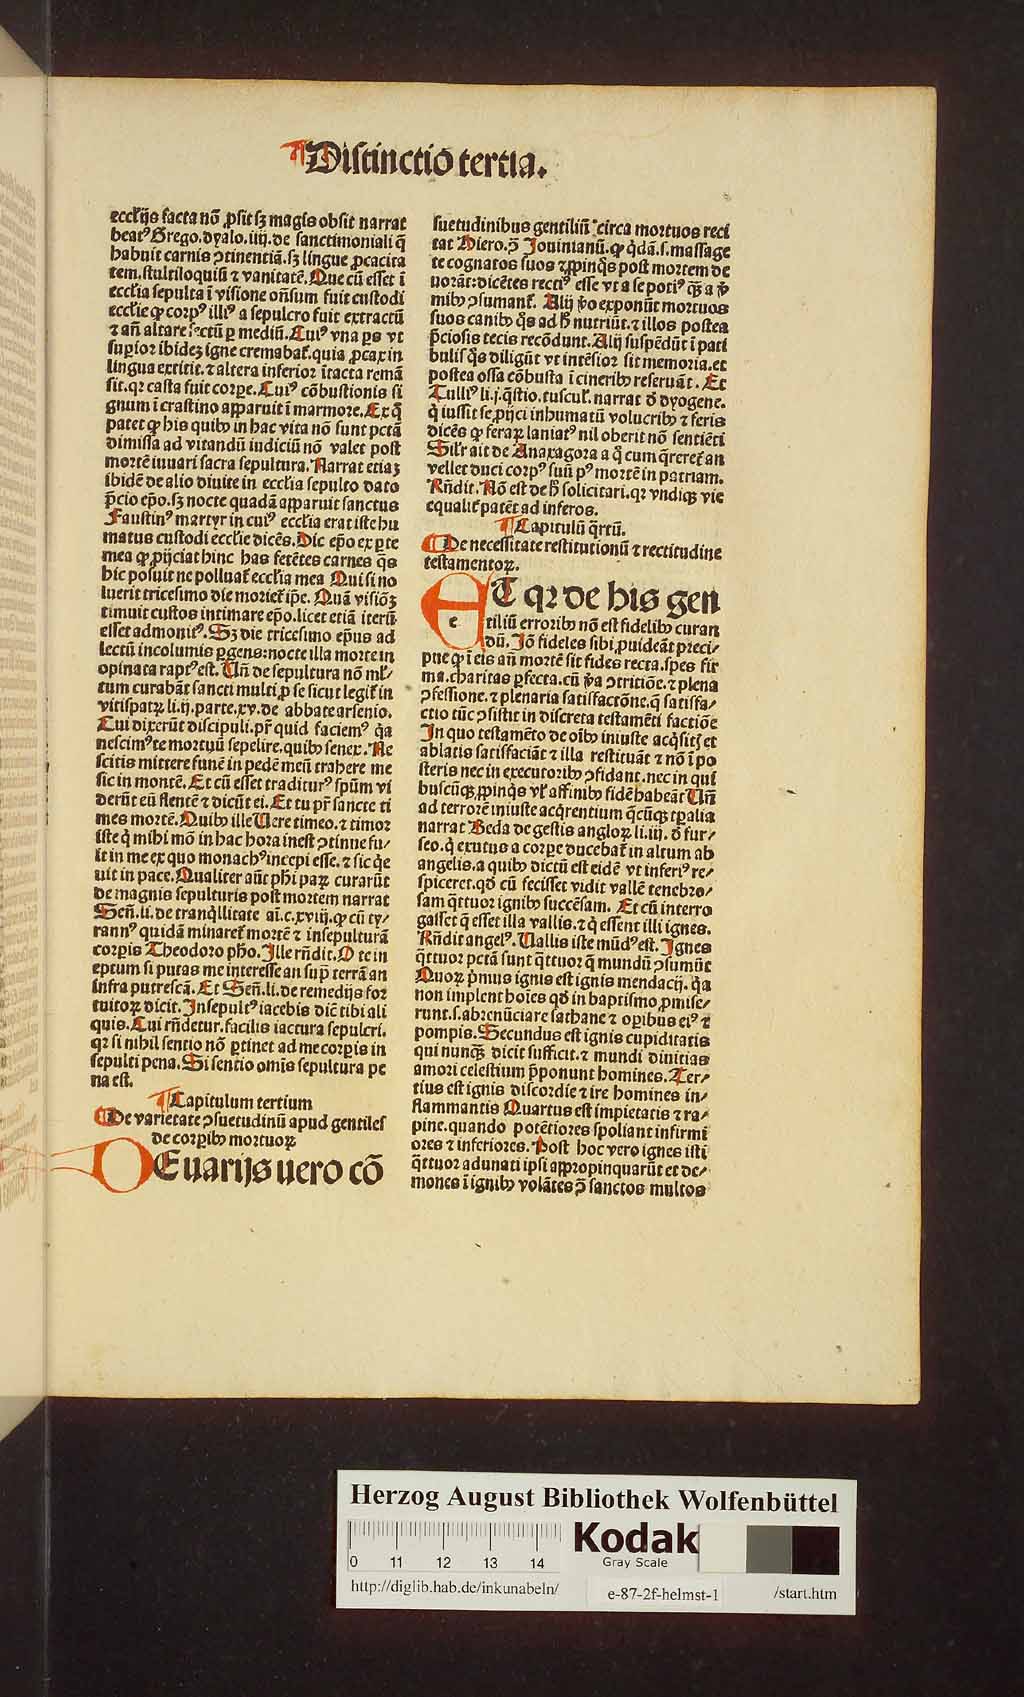 Distinctio tertia.
eccłijs facta nō ꝓsit sꝫ magis obsit narrat
beatꝰ Grego. dyalo. iiij. de sanctimoniali q̄
habuit carnis ꝯtinentiā. sꝫ lingue ꝓcacita
tem. stultiloquiū ⁊ vanitatē. Que cū esset ī
eccłia sepulta ī visione oñsum fuit custodi
eccłie ꝙ corpꝰ illiꝰ a sepulcro fuit extractū
⁊ añ altare sectū ꝑ mediū. Cuiꝰ vna ps vt
superior ibidez igne cremabat̄. quia ꝓcax in
lingua extitit. ⁊ altera inferior ītacta remā
sit. qꝛ casta fuit corpe. Cuiꝰ cōbustionis si
gnum ī crastino apparuit ī marmore. Ex q̄
patet ꝙ his quibꝰ in hac vita nō sunt pctā
dimissa ad vitandū iudiciū nō valet post
mortē iuuari sacra sepultura. Narrat etiaꝫ
ibidē de alio diuite in eccłia sepulto dato
p̄cio ep̄o. sꝫ nocte quadā apparuit sanctus
Faustinꝰ martyr in cuiꝰ eccłia erat iste hu
matus custodi eccłie dicēs. Dic ep̄o ex ꝑte
mea ꝙ ꝓijciat hinc has fetētes carnes q̄s
hic posuit ne polluat̄ eccłia mea Qui si no
luerit tricesimo die moriet̄ ip̄e. Quā visiōꝫ
timuit custos intimare ep̄o. licet etiā iterū
esset admonitꝰ. Sꝫ die tricesimo ep̄us ad
lectū incolumis ꝑgens: nocte illa morte in
opinata raptꝰ est. Uñ de sepultura nō ml̄/
tum curabāt sancti multi ꝓ se sicut legit̄ in
vitispatꝝ li. ij. parte. xv. de abbate arsenio.
Cui dixerūt discipuli. pr̄ quid faciemꝰ q̇a
nescimꝰ te mortuū sepelire. quibꝰ senex. Ne
scitis mittere funē in pedē meū trahere me
sic in montē. Et cū esset traditurꝰ spūm vi
derūt eū flentē ⁊ dicūt ei. Et tu pr̄ sancte ti
mes mortē. Quibꝰ ille Uere timeo. ⁊ timor
iste q̇ mihi mō in hac hora inest ꝯtinue fu/
it in me ex quo monachꝰ incepi esse. ⁊ sic q̇e
uit in pace. Qualiter aūt phi paꝝ curarūt
de magnis sepulturis post mortem narrat
Señ. li. de tranq̇llitate ai. c. xviij. ꝙ cū ty/
rannꝰ quidā minaret̄ mortē ⁊ insepulturā
corpis Theodoro pho. Ille rñdit. O te in
eptum si putas me interesse an supra terrā an
infra putrescā. Et Señ. li. de remedijs for
tuitoꝝ dicit. Insepultꝰ iacebis dic̄ tibi ali
quis. Cui rñdetur. facilis iactura sepulcri.
qꝛ si nibil sentio nō ꝑtinet ad me corpis in
sepulti pena. Si sentio omis sepultura pe
na est.
Capitulum tertium
De varietate ꝯsuetudinū apud gentiles
de corpibꝰ mortuoꝝ
DE uarijs uero cō
suetudinibus gentiliū circa mortuos reci
tat Hiero. ꝯ̄ Jouinianū. ꝙ q̇dā. s. massage
te cognatos suos ⁊ ꝓpinq̇s post mortem de
uorāt: dicētes rectiꝰ esse vt a se potiꝰ qꝫ a v̄
mibꝰ ꝯsumant̄. Alij v̄o exponūt mortuos
suos canibꝰ q̇s ad h̄ nutriūt. ⁊ illos postea
p̄ciosis tecis recōdunt. Alij suspēdūt ī pati
bulis q̇s diligūt vt intēsior sit memoria. et
postea ossa cōbusta ī cineribꝰ reseruāt. Et
Tulliꝰ li. j. q̄stio. tuscul̄. narrat ꝺ̄ dyogene.
q̇ iussit se ꝓijci inhumatū volucribꝰ ⁊ feris
dicēs ꝙ feraꝝ laniatꝰ nil oberit nō sentiēti
Sil̄r ait de Anaxagora a q̇ cum q̄reret̄ an
vellet duci corpꝰ suū pꝰ mortē in patriam.
Rñdit. Nō est de h̄ solicitari. qꝛ vndiqꝫ vie
equalit̄ patēt ad inferos.
Capitulū q̄rtū.
De necessitate restitutionū ⁊ rectitudine
testamentoꝝ.
e
ET qꝛ de his gen
tiliū erroribꝰ nō est fidelibꝰ curan
dū. Jō fideles sibi ꝓuideāt preci/
pue ꝙ ī eis añ mortē sit fides recta. spes fir
ma. charitas ꝑfecta. cū v̄a ꝯtritiōe. ⁊ plena
ꝯfessione. ⁊ plenaria satisfactōne. q̄ satisfa/
ctio tūc ꝯsistit in discreta testamēti factiōe
In quo testamēto de oībꝰ iniuste acq̇sitꝫ et
ablatis satisfaciāt ⁊ illa restituāt ⁊ nō ī po
steris nec in executoribꝰ ꝯfidant. nec in qui
buscūqꝫ ꝓpinq̇s vl̄ affinibꝰ fidē habeāt Uñ
ad terrorē iniuste acq̇rentium q̄cūqꝫ tꝑalia
narrat Beda de gestis angloꝝ li. iij. ꝺ̄ fur/
seo. q̇ exutus a corpe ducebat̄ in altum ab
angelis. a quibꝰ dictū est eidē vt inferiꝰ re/
spiceret. qd̄ cū fecisset vidit vallē tenebro/
sam q̄ttuor ignibꝰ succēsam. Et cū interro
gasset q̄ esset illa vallis. ⁊ q̇ essent illi ignes.
Rñdit angelꝰ. Uallis iste mūdꝰ est. Ignes
q̄ttuor pctā sunt q̄ttuor q̄ mundū ꝯsumūt
Quoꝝ p̄mus ignis est ignis mendacij. q̇a
non implent hoies qd̄ in baptismo ꝓmise/
runt. s. abrenūciare sathane ⁊ opibus eiꝰ ⁊
pompis. Secundus est ignis cupiditatis
qui nunqꝫ dicit sufficit. ⁊ mundi diuitias
amori celestium p̄ponunt homines. Ter/
tius est ignis discordie ⁊ ire homines in/
flammantis Quartus est impietatis ⁊ ra/
pine. quando potētiores spoliant infirmi
ores ⁊ inferiores. Post hoc vero ignes isti
q̄ttuor adunati ipsi appropinquarūt et de/
mones ī ignibꝰ volātes ꝯ̄ sanctos multos
Herzog August Bibliothek Wolfenbüttel
Kodak
Gray Scale
0 11 12 13 14
http://diglib.hab.de/inkunabeln/
e-87-2f-helmst-1
/start.htm